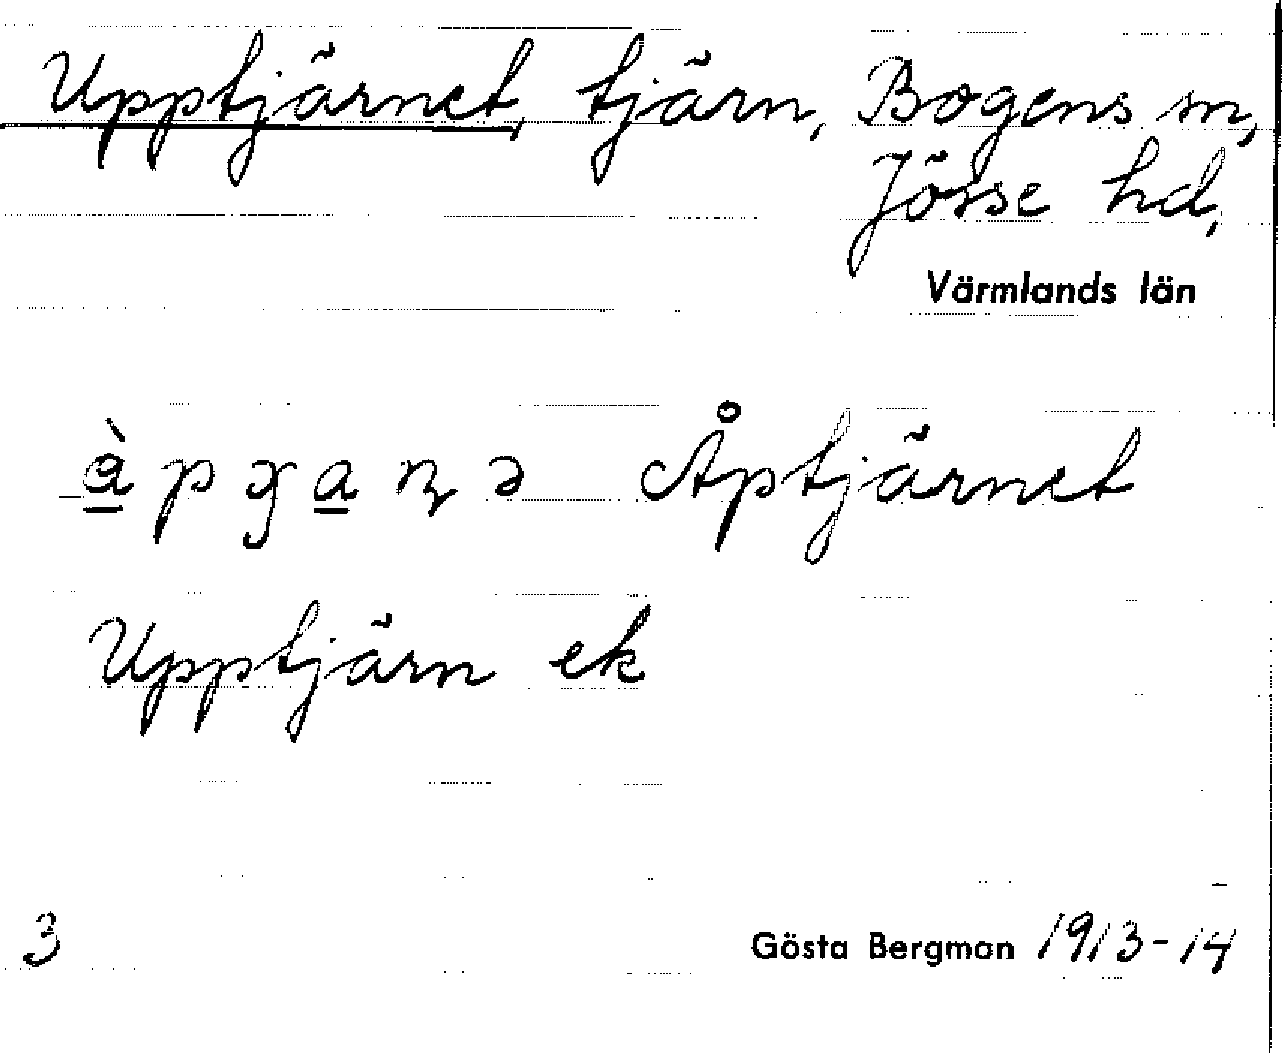 Upptjärnet, tjärn, Bogens sn,
Jösse hd,
Värmlands län
Åptjärnet
Upptjärn ek
3 Gösta Bergman 1913-14